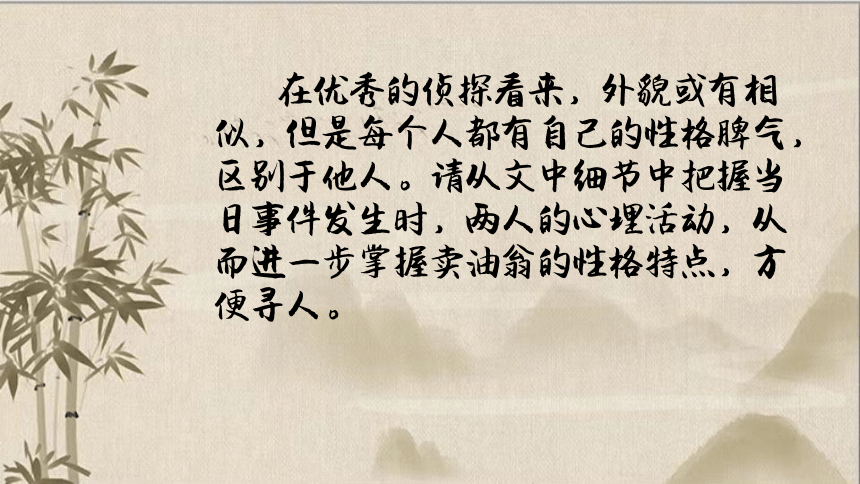 在优秀的侦探看来，外貌或有相
似，但是每个人都有自己的性格脾气，
区别于他人。请从文中细节中把握当
日事件发生时，两人的心理活动，从
而进一步掌握卖油翁的性格特点，方
便寻人。